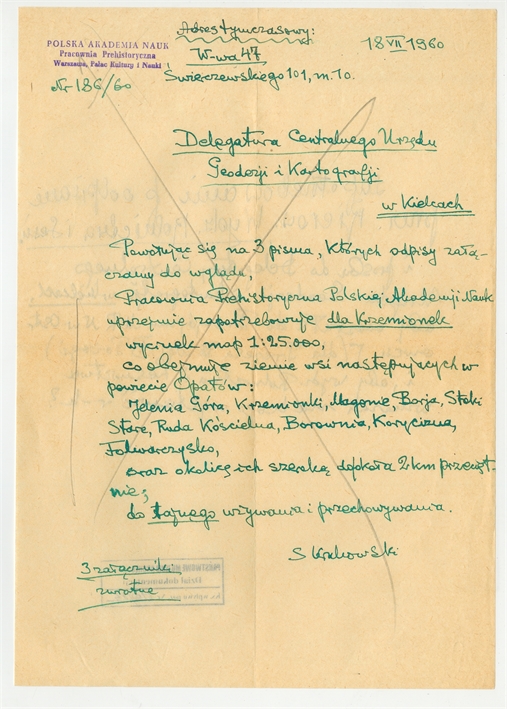 Adres tymczasowy:
W-wa 47
Świerczewskiego 101, m. 70.
18 VII 1960
POLSKA AKADEMIA NAUK
Pracownia Prehistoryczna
Warszawa, Pałac Kultury i Nauki
Nr 186/60
Delegatura Centralnego Urzędu
Geodezji i Kartografji
w Kielcach
Powołując się na 3 pisma, których odpisy załą-
czamy do wglądu,
Pracownia Prehistoryczna Polskiej Akademji Nauk
uprzejmie zapotrzebowuje dla Krzemionek
wycinek map 1:25.000,
co obejmuje ziemie wsi następujących w
powiecie Opatów:
Jelenia Góra, Krzemionki, Magonie, Borja, Stoki
Stare, Ruda Kościelna, Borownia, Korycizna,
Folwarczysko,
oraz okolicę ich szeroką dokoła 2 km przecięt-
nie;
do tajnego używania i przechowywania.
S Krukowski
3 załączniki
zwrotne